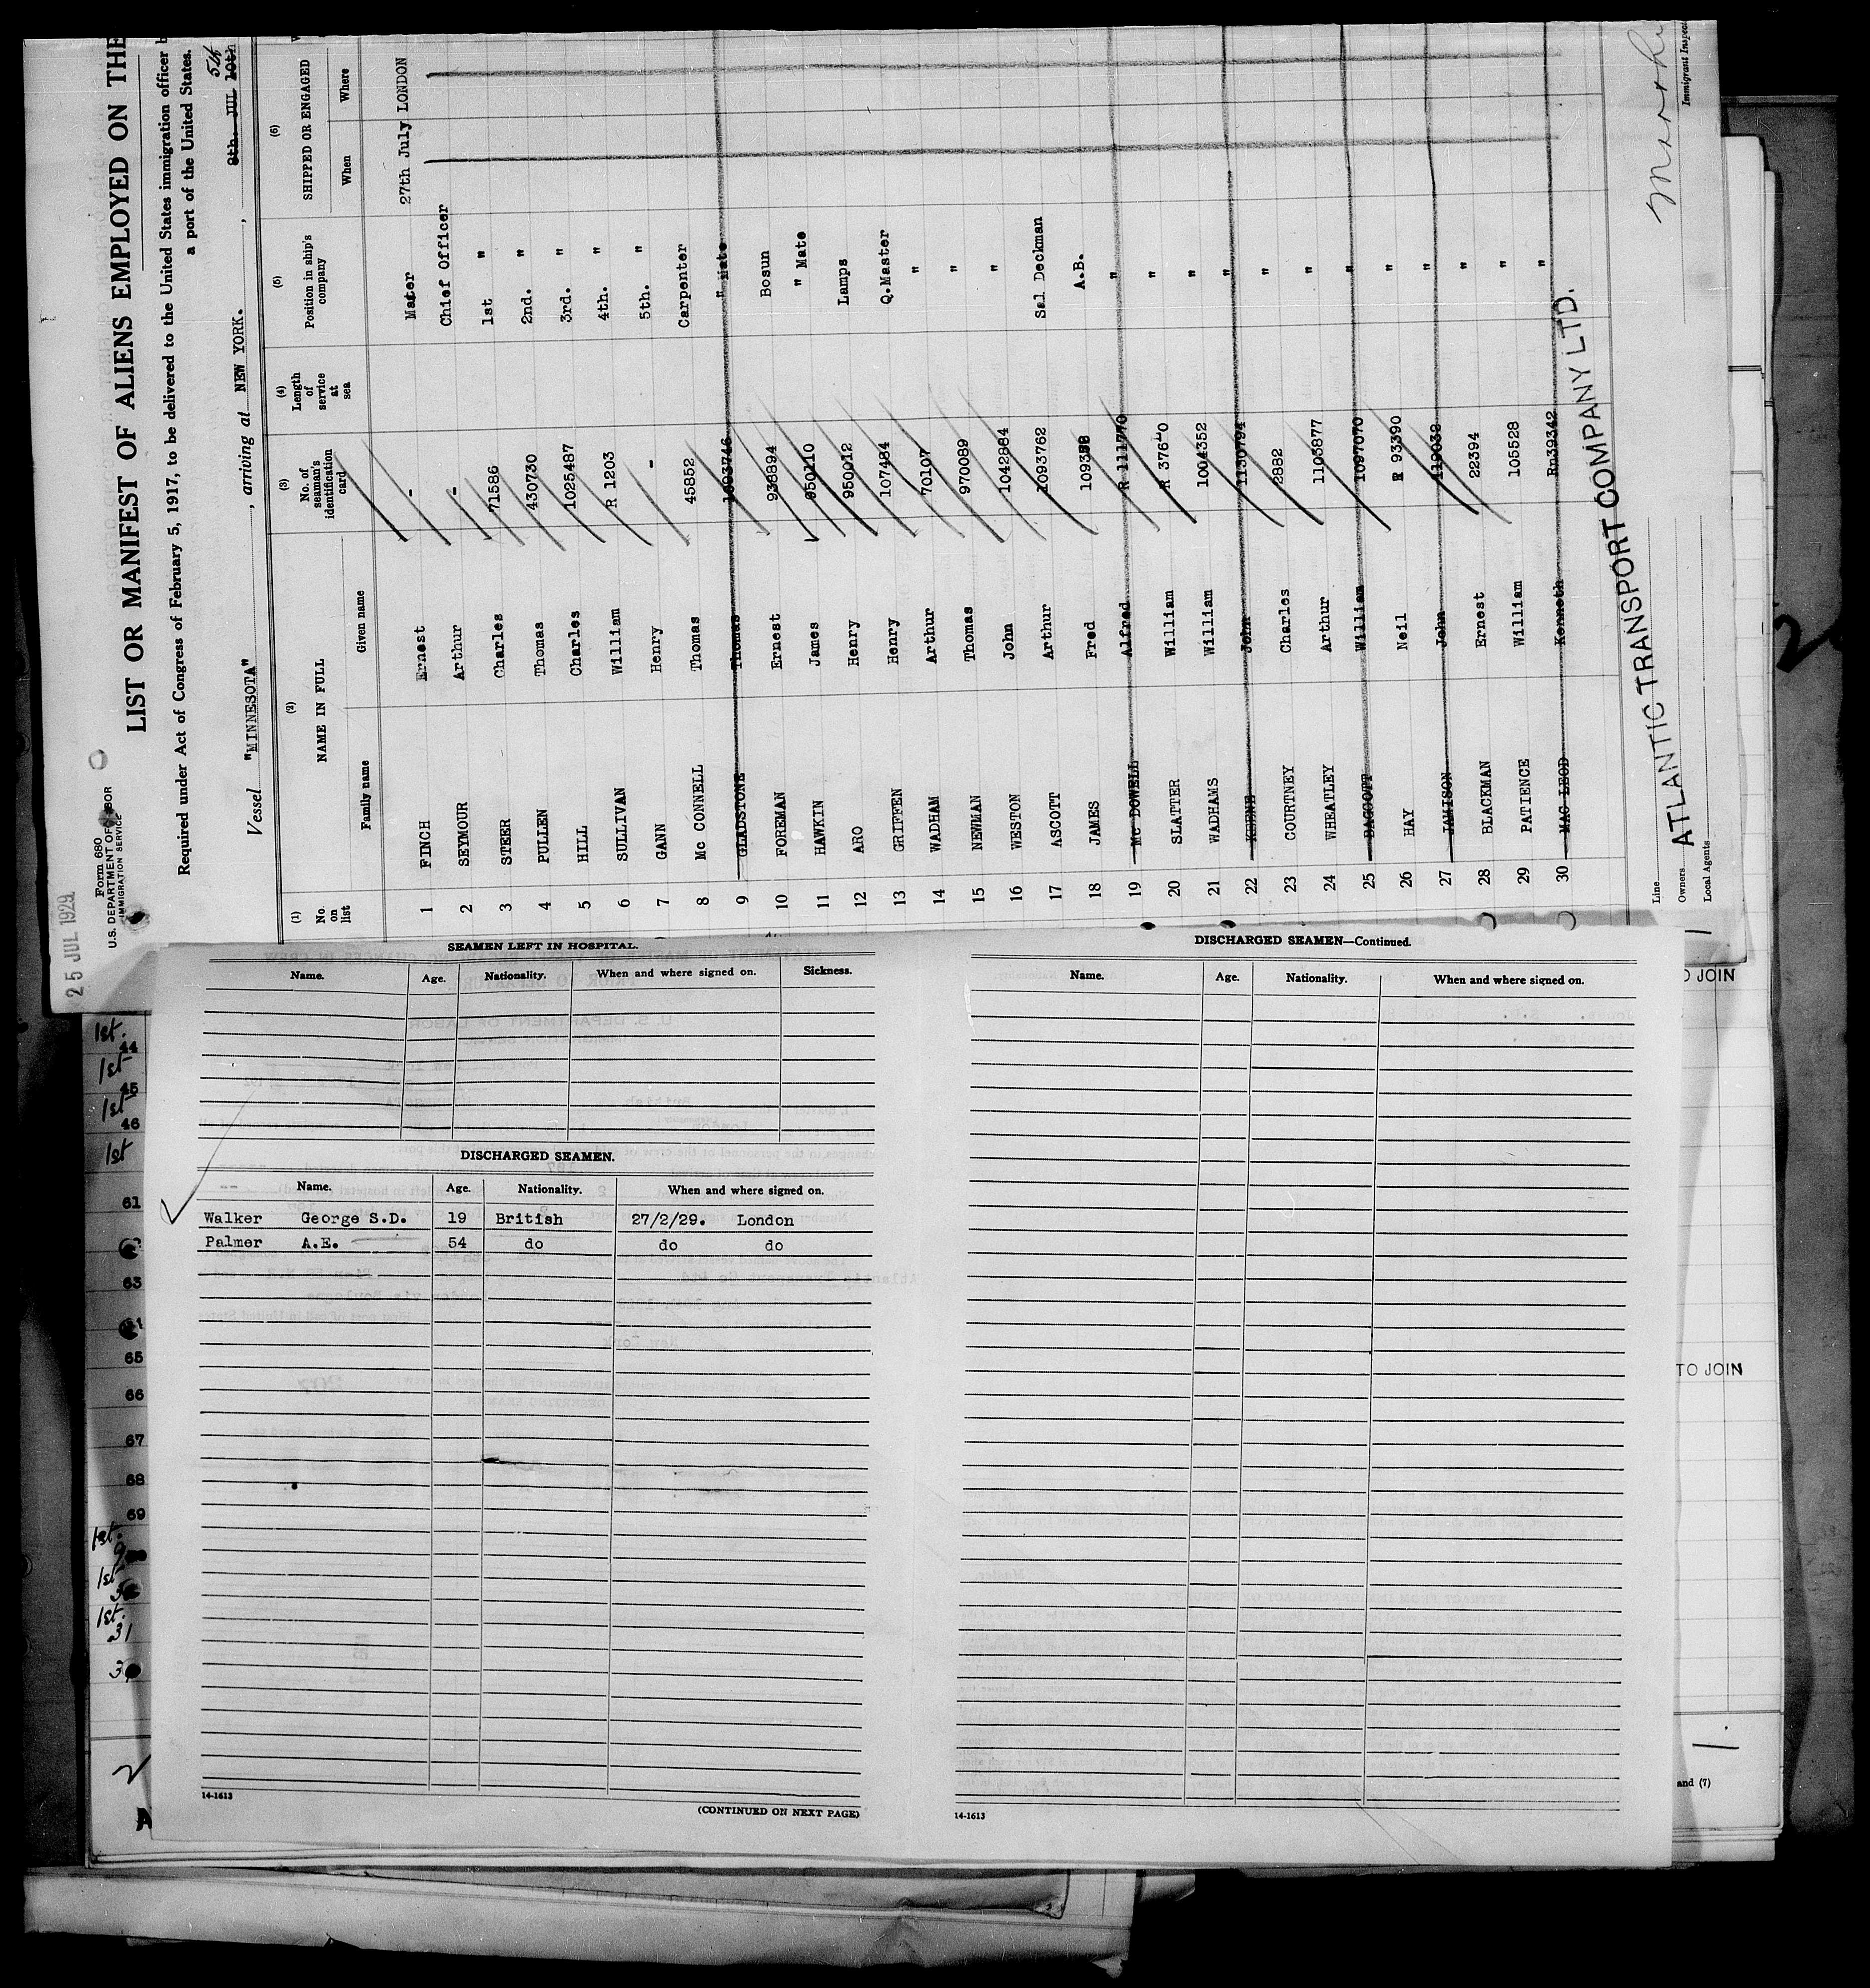 25 JUL 1929
Form 680
U.S. DEPARTMENT OF LABOR
IMMIGRATION SERVICE
LIST OR MANIFEST OF ALIENS EMPLOYED ON THE
Required under Act of Congress of February 5, 1917, to be delivered to the United States immigration officer b
a port of the United States.
Vessel "MINNESOTA", arriving at NEW YORK. , 8th. JUL 10th 5th
(1) (2) (3) (4) (5) (6)
No. on list NAME IN FULL No. of seaman's identification card Length of service at sea Position in ship's company SHIPPED OR ENGAGED
Family name Given name When Where
1 FINCH Ernest - Mater 27th July LONDON
2 SEYMOUR Arthur - Chief Officer
3 STEER Charles 71586 1st "
4 PULLEN Thomas 430730 2nd. "
5 HILL Charles 1025487 3rd. "
6 SULLIVAN William R 1203 4th. "
7 GANN Henry - 5th. "
8 Mc CONNELL Thomas 45852 Carpenter
9 GLADSTONE Thomas 1093746 " Mate
10 FOREMAN Ernest 938894 Bosun
11 HAWKIN James 950110 " Mate
12 ARO Henry 950012 Lamps
13 GRIFFEN Henry 107484 Q.Master
14 WADHAM Arthur 70107 "
15 NEWMAN Thomas 970089 "
16 WESTON John 1042884 "
17 ASCOTT Arthur 1093762 Sal Deckman
18 JAMES Fred A.B.
19 Mc DOWELL Alfred R 111770 "
20 SLATTER William "
21 WADHAMS William 1004352 "
22 John 1130794 "
23 COURTNEY Charles 2882 "
24 WHEATLEY Arthur 1103877 "
25 BAGGOTT William 1097070 "
26 HAY Neil R 93390 "
27 JAMISON John "
28 BLACKMAN Ernest 22394 "
29 PATIENCE William 105528 "
30 MAC LEOD Kenneth Rn39342 "
Line
Owners ATLANTIC TRANSPORT COMPANY LTD.
Local Agents
Immigrant Inspec
SEAMEN LEFT IN HOSPITAL.
Name. Age. Nationality. When and where signed on. Sickness.
DISCHARGED SEAMEN.
Name. Age. Nationality. When and where signed on.
Walker George S.D. 19 British 27/2/29. London
Palmer A.E. 54 do do do
14-1613
(CONTINUED ON NEXT PAGE)
DISCHARGED SEAMEN—Continued.
Name. Age. Nationality. When and where signed on.
14-1613
1st.
44
1st
45
1st
46
1st
61
63
65
66
67
68
69
1st.
1st
1st.
31
O JOIN
TO JOIN
and (7)